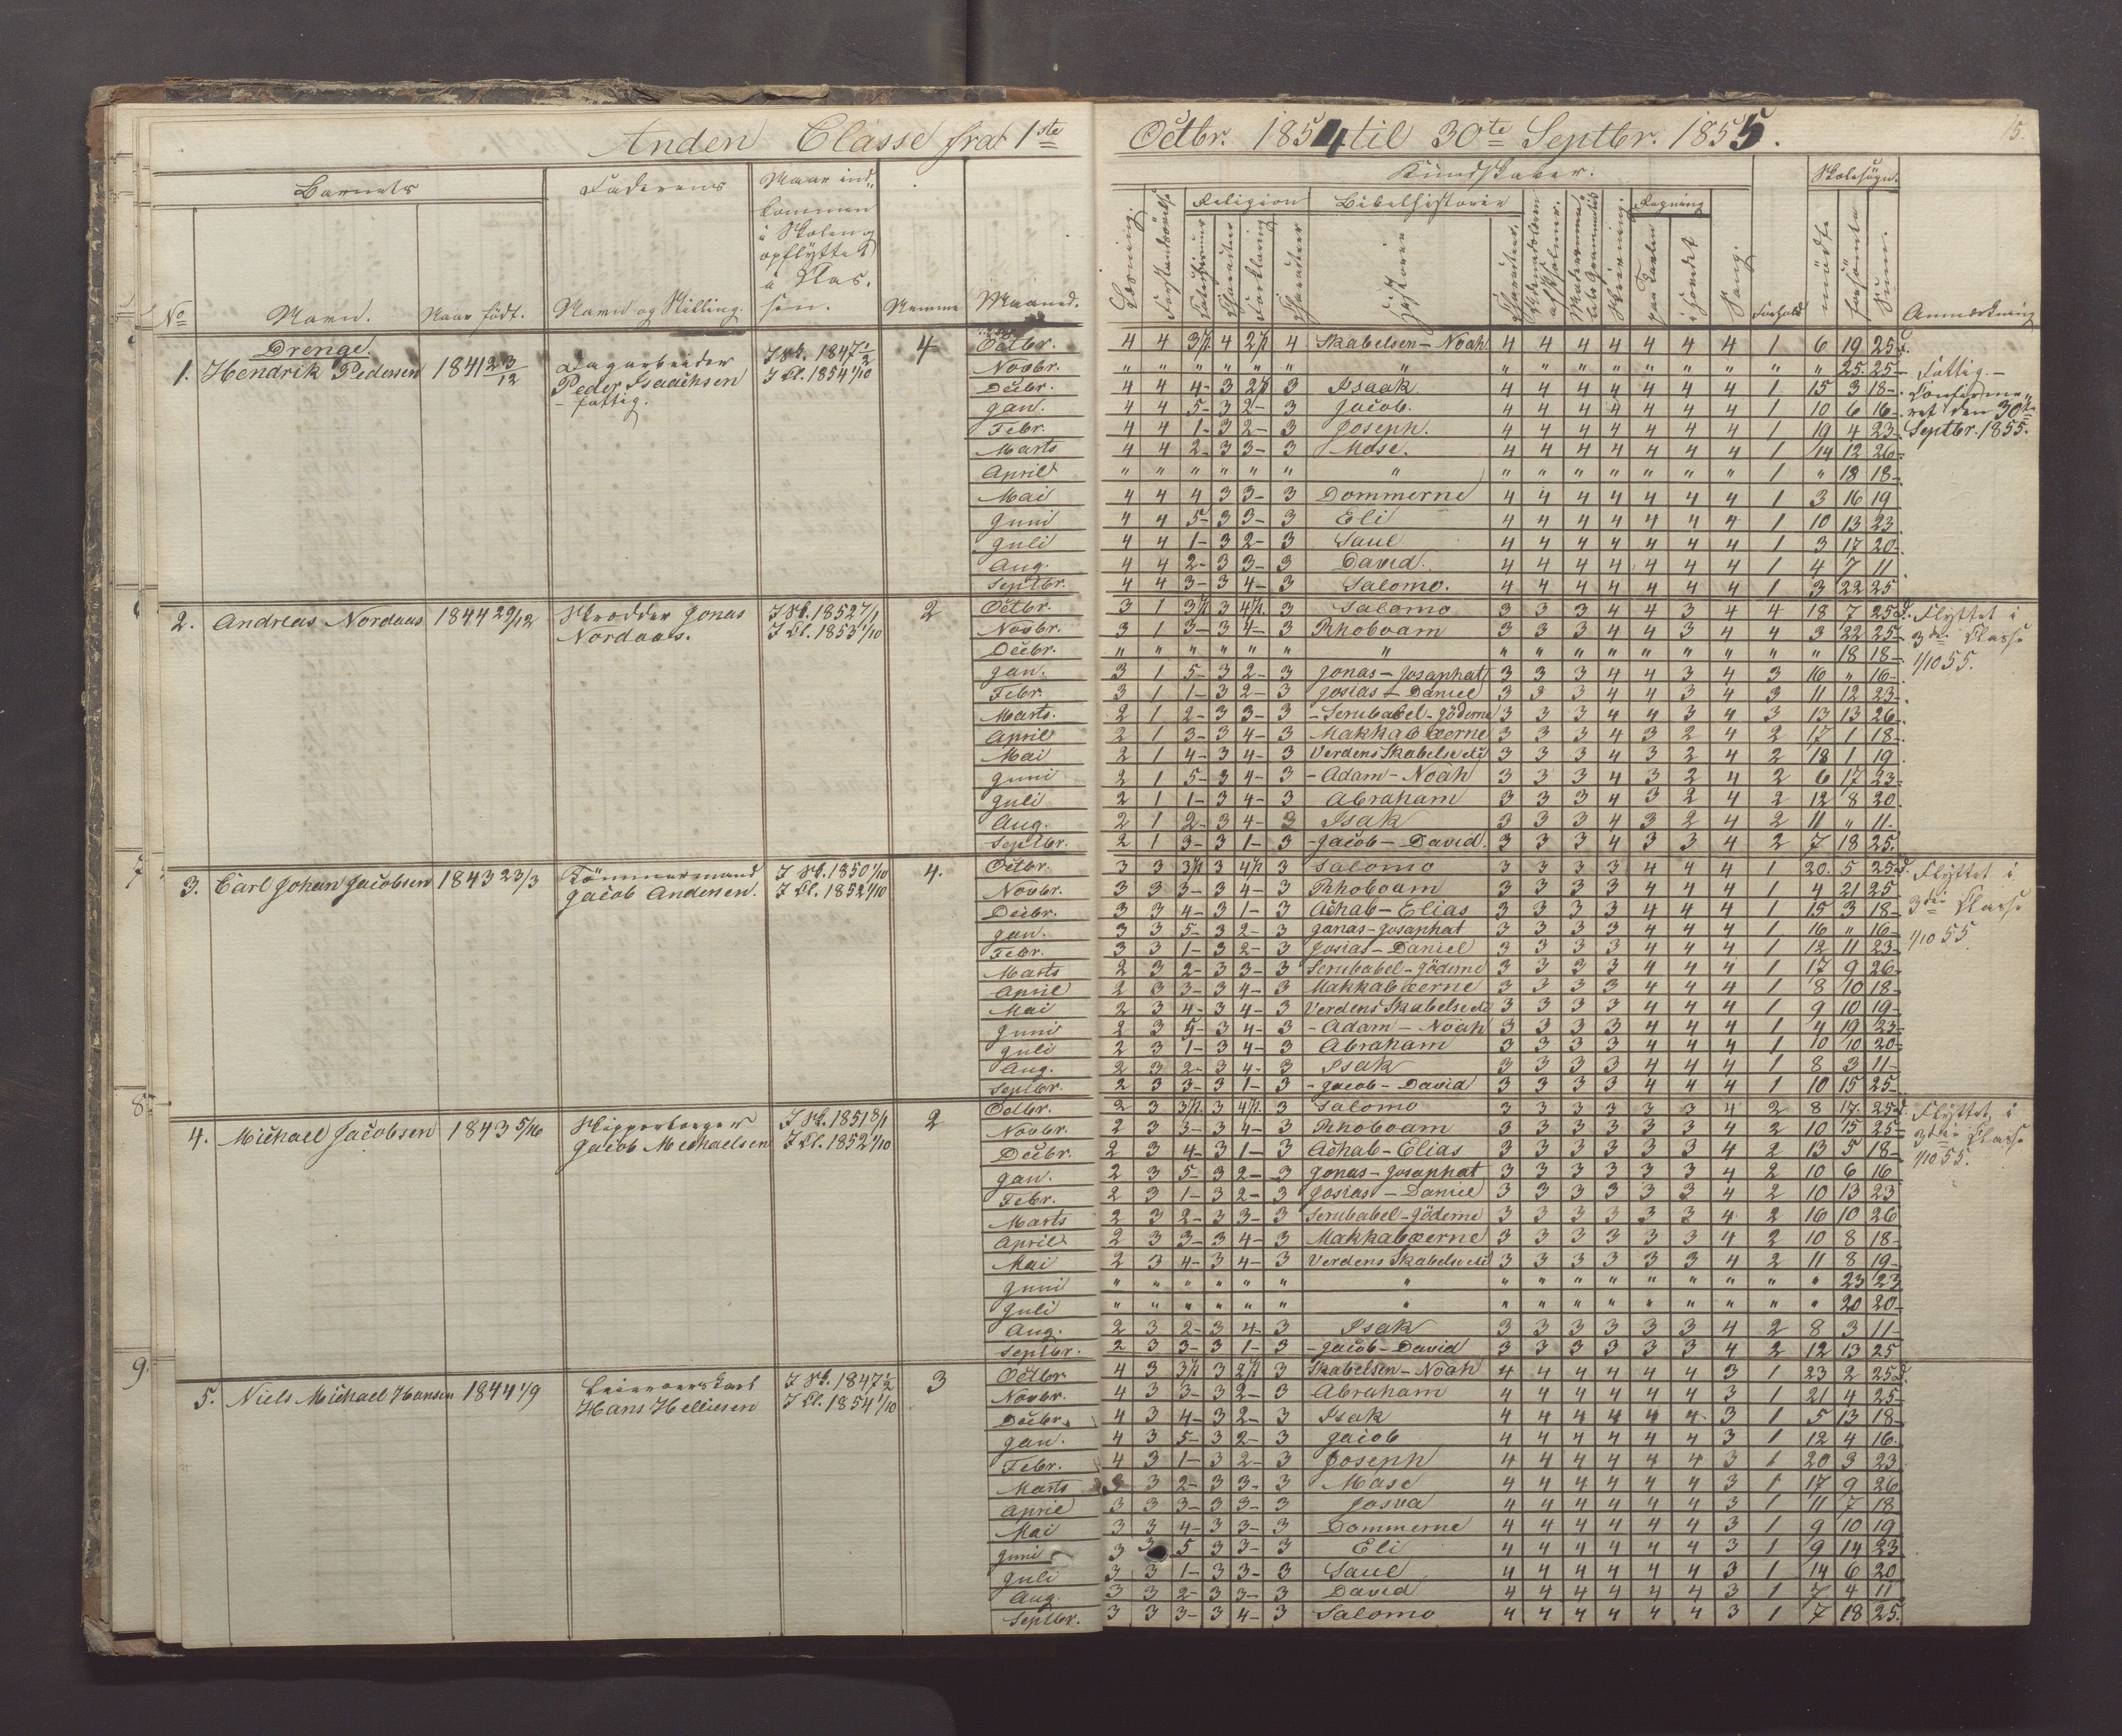 Anden Classe fra 1ste Octbr. 1854 til 30te Septbr. 1855.
15.
Barnets
Faderens
Naar ind-
kommen
i Skolen og
opflyttet
i Klas-
sen.
No
Navn.
Naar født.
Navn og Stilling.
Nemme
Maaned.
Kundskaber.
Skolesøgn.
Religion
Bibelhistorie
Regning
Læsning.
Forklaring
Historie
Sang.
Forhold
mødte
forsømte
Sum.
Anmærkning
Drenge.
1. Hendrik Pedersen 1841 23/12 Dagarbeider
Peder Isachsen
- fattig.
I Sk. 1847 1/2
I Cl. 1854 1/10
4
Octbr. 4 4 3 4 2 4 Skabelsen - Noah 4 4 4 4 4 4 4 1 6 19 25
Novbr. " " " " " " " " " " " " " " " " 25 25
Decbr. 4 4 4- 3 2 3 Isaak 4 4 4 4 4 4 4 1 15 3 18-
Jan. 4 4 5- 3 2- 3 Jacob. 4 4 4 4 4 4 4 1 10 6 16-
Febr. 4 4 1- 3 2- 3 Joseph. 4 4 4 4 4 4 4 1 19 4 23-
Marts 4 4 2- 3 3- 3 Mose. 4 4 4 4 4 4 4 1 14 12 26-
April " " " " " " " " " " " " " " 1 " 18 18-
Mai 4 4 4 3 3- 3 Dommerne 4 4 4 4 4 4 4 1 3 16 19
Juni 4 4 5- 3 3- 3 Eli 4 4 4 4 4 4 4 1 10 13 23
Juli 4 4 1- 3 2- 3 Saul 4 4 4 4 4 4 4 1 3 17 20-
Aug. 4 4 2- 3 3- 3 David. 4 4 4 4 4 4 4 1 4 7 11
Septbr. 4 4 3- 3 4- 3 Salomo. 4 4 4 4 4 4 4 1 3 22 25
Fattig. -
Confirme-
ret den 30te
Septbr. 1855.
2. Andreas Nordaas 1844 29/12 Skrædder Jonas
Nordaas.
I Sk. 1852 7/1
I Cl. 1853 1/10
2
Octbr. 3 1 3 3 4 3 Salomo 3 3 3 4 4 3 4 4 18 7 25
Novbr. 3 1 3- 3 4- 3 Rhoboam 3 3 3 4 4 3 4 4 3 22 25-
Decbr. " " " " " " " " " " " " " " " " 18 18-
Jan. 3 1 5- 3 2- 3 Jonas - Josaphat 3 3 3 4 4 3 4 3 16 " 16-
Febr. 3 1 1- 3 2- 3 Josias - Daniel 3 3 3 4 4 3 4 3 11 12 23-
Marts. 2 1 2- 3 3- 3 - Serubabel - Jöderne 3 3 3 4 4 3 4 3 13 13 26-
April 2 1 3- 3 4- 3 Makkabæerne 3 3 3 4 3 2 4 2 17 1 18-
Mai 2 1 4- 3 4- 3 Verdens Skabelse 3 3 3 4 3 2 4 2 18 1 19
Juni 2 1 5- 3 4- 3 - Adam - Noah 3 3 3 4 3 2 4 2 6 17 23-
Juli 2 1 1- 3 4- 3 Abraham 3 3 3 4 3 2 4 2 12 8 20
Aug. 2 1 2- 3 4- 3 Isak 3 3 3 4 3 2 4 2 11 " 11.
Septbr. 2 1 3- 3 1- 3 - Jacob - David. 3 3 3 4 3 3 4 2 7 18 25.
Flyttet i
3die Classe
1/10 55.
3. Carl Johan Jacobsen 1843 23/3 Tømmermand
Jacob Andersen.
I Sk. 1850 1/10
I Cl. 1852 1/10
4.
Octbr. 3 3 3 3 4 3 Salomo 3 3 3 3 4 4 4 1 20. 5 25
Novbr. 3 3 3- 3 4- 3 Rhoboam 3 3 3 3 4 4 4 1 4 21 25
Decbr. 3 3 4- 3 1- 3 Achab - Elias 3 3 3 3 4 4 4 1 15 3 18-
Jan. 3 3 5- 3 2- 3 Jonas - Josaphat 3 3 3 3 4 4 4 1 16 " 16-
Febr. 3 3 1- 3 2- 3 Josias - Daniel 3 3 3 3 4 4 4 1 12 11 23-
Marts 2 3 2- 3 3- 3 Serubabel - Jöderne 3 3 3 3 4 4 4 1 17 9 26-
April 2 3 3- 3 4- 3 Makkabæerne 3 3 3 3 4 4 4 1 8 10 18-
Mai 2 3 4- 3 4- 3 Verdens Skabelse 3 3 3 3 4 4 4 1 9 10 19-
Juni 2 3 5- 3 4- 3 - Adam - Noah 3 3 3 3 4 4 4 1 4 19 23-
Juli 2 3 1- 3 4- 3 Abraham 3 3 3 3 4 4 4 1 10 10 20-
Aug. 2 3 2- 3 4- 3 Isak 3 3 3 3 4 4 4 1 8 3 11-
Septbr. 2 3 3- 3 1- 3 - Jacob - David 3 3 3 3 4 4 4 1 10 15 25-
Flyttet i
3die Classe
1/10 55
4. Michael Jacobsen 1843 5/10 Skipperborger
Jacob Mechaelsen
I Sk. 1851 8/1
I Cl. 1852 1/10
2
Octbr. 2 3 3 3 4 3 Salomo 3 3 3 3 3 3 4 2 8 17 25
Novbr. 2 3 3- 3 4- 3 Rhoboam 3 3 3 3 3 3 4 2 10 15 25-
Decbr. 2 3 4- 3 1- 3 Achab - Elias 3 3 3 3 3 3 4 2 13 5 18-
Jan. 2 3 5- 3 2- 3 Jonas - Josaphat 3 3 3 3 3 3 4 2 10 6 16
Febr. 2 3 1- 3 2- 3 Josias - Daniel 3 3 3 3 3 3 4 2 10 13 23
Marts 2 3 2- 3 3- 3 Serubabel - Jöderne 3 3 3 3 3 3 4 2 16 10 26
April 2 3 3- 3 4- 3 Makkabæerne 3 3 3 3 3 3 4 2 10 8 18-
Mai 2 3 4- 3 4- 3 Verdens Skabelse 3 3 3 3 3 3 4 2 11 8 19-
Juni " " " " " " " " " " " " " " " " 23 23
Juli " " " " " " " " " " " " " " " " 20 20-
Aug. 2 3 2- 3 4- 3 Isak 3 3 3 3 3 3 4 2 8 3 11-
Septbr. 2 3 3- 3 1- 3 - Jacob - David 3 3 3 3 3 3 4 2 12 13 25
Flyttet i
3die Classe
1/10 55.
5. Niels Michael Hansen 1844 1/9
Hans Helliesen
I Sk. 1847 1/2
I Cl. 1854 1/10
3
Octbr 4 3 3 3 2 3 Skabelsen - Noah 4 4 4 4 4 4 3 1 23 2 25
Novbr. 4 3 3- 3 2- 3 Abraham 4 4 4 4 4 4 3 1 21 4 25-
Decbr. 4 3 4- 3 2- 3 Isak 4 4 4 4 4 4 3 1 5 13 18-
Jan. 4 3 5- 3 2- 3 Jacob 4 4 4 4 4 4 3 1 12 4 16.
Febr. 4 3 1- 3 2- 3 Joseph 4 4 4 4 4 4 3 1 20 3 23
Marts 3 3 2- 3 3- 3 Mose 4 4 4 4 4 4 3 1 17 9 26
April 3 3 3- 3 3- 3 Josva 4 4 4 4 4 4 3 1 11 7 18
Mai 3 3 4- 3 3- 3 Dommerne 4 4 4 4 4 4 3 1 9 10 19
Juni 3 3 5 3 3- 3 Eli 4 4 4 4 4 4 3 1 9 14 23
Juli 3 3 1- 3 3- 3 Saul 4 4 4 4 4 4 3 1 14 6 20
Aug. 3 3 2- 3 3- 3 David 4 4 4 4 4 4 3 1 7 4 11
Septbr. 3 3 3- 3 4- 3 Salomo 4 4 4 4 4 4 3 1 7 18 25.
6
7
8
9.